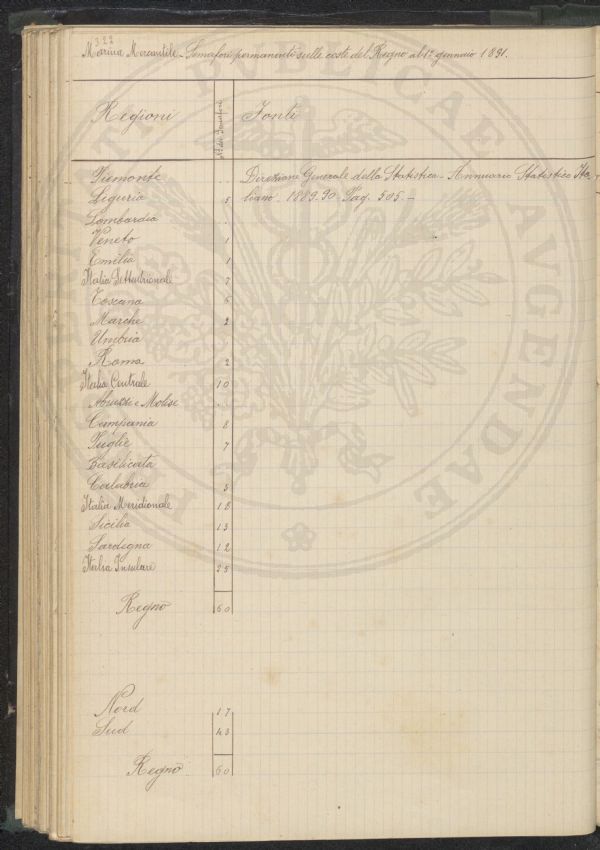 322
Marina Mercantile - Semafori permanenti sulle coste del Regno al 1° gennaio 1891.
Regioni N° dei Semafori Fonti
Piemonte .. Direzione Generale della Statistica - Annuario Statistico Ita
Liguria 5 liano - 1889.90 - Pag. 505. -
Lombardia ..
Veneto 1
Emilia 1
Italia Settentrionale 7
Toscana 6
Marche 2
Umbria ..
Roma 2
Italia Centrale 10
Abruzzi e Molise ..
Campania 8
Puglie 7
Basilicata ..
Calabria 3
Italia Meridionale 18
Sicilia 13
Sardegna 12
Italia Insulare 25
Regno 60
Nord 17
Sud 43
Regno 60